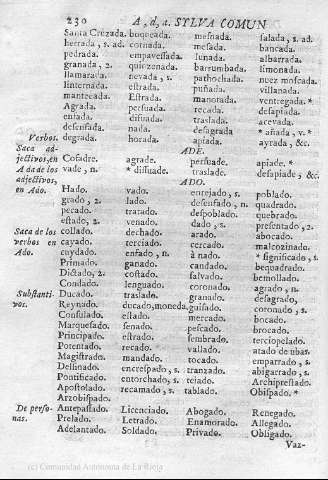 230 A, d, a. SYLVA COMUN
Santa Cruzada. boqueada. mesnada. salada, s. ad.
herrada, s. ad. cornada. mesada. bancada.
pedrada. empavessada. lunada. albarrada.
granada, 2. quinzenada. barrumbada. limonada.
llamarada. nevada, s. pathochada. nuez moscada.
linternada. estrada. puñada. villanada.
mantecada. Estrada. manorada. ventregada. *
Agrada. persuada. recada. desapiada.
enfada. disuada. traslada. acevada.
desenfada. nada. desagrada * añada, v. *
Verbos. degrada. horada. apiada. ayrada, &c.
Saca ad-
jectivos, en
A da de los
adjectivos,
en Ado.
ADE.
Cofadre. agrade. persuade. apiade. *
vade, n. * dissuade. traslade. desapiade, &c.
ADO.
Hado. vado. entejado, s. poblado, n.
grado, 2. lado. desenfado, n. quadrado.
pecado. tratado. despoblado. quebrado.
estado, 2. venado. dado, s. presentado, 2.
Saca de los
verbos en
Ado.
collado. dechado. arado. abocado.
cayado. terciado. cercado. malcozinado.
cuydado. enfado, n. à nado. * significado, s.
Primado. ganado. candado. bequadrado.
Dictado, 2. costado. salvado. bemollado.
Condado. lenguado. coronado, s.
Substanti-
vos.
Ducado. traslado. granado. desagrado,
Reynado. ducado, moneda. guisado. coronado, s.
Consulado. estado. mercado. bocado.
Marquesado. senado. pescado. brocado.
Principado. estrado. sembrado. terciopelado.
Potentado. recado. vallado. atado de tibas.
Magistrado. mandado. tocado. emparrado, s.
Delfinado. encrespado, s. tranzado. abigarrado, s.
Pontificado. entorchado, s. teiado. Archiprestado.
Apostolado. recamado, s. tablado. Obispado. *
Arzobispado.
De perso-
nas.
Antepassado. Licenciado. Abogado. Renegado.
Prelado. Letrado. Enamorado. Allegado.
Adelantado. Soldado. Privado. Obligado.
Vaz-
(c) Comunidad Autónoma de La Rioja